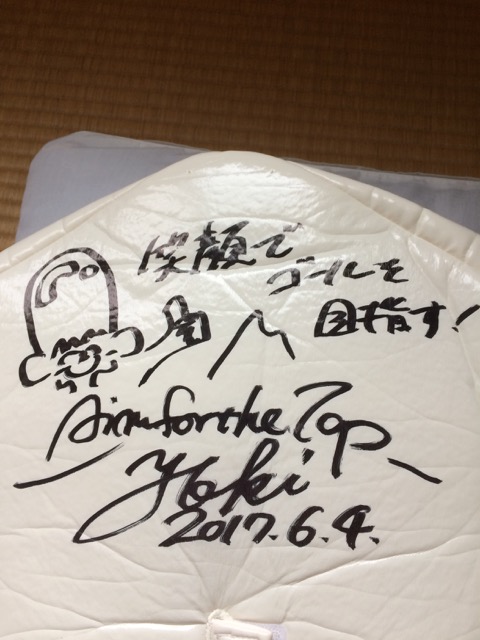 笑顔で
ゴールを
目指す!
Aim for the Top
Yoki
2017.6.4.